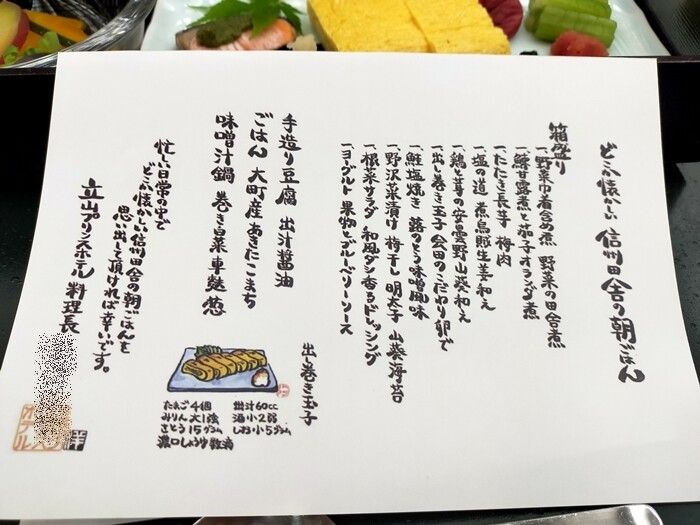 どこか懐かしい 信州田舎の朝ごはん
箱盛り
一、野菜巾着含め煮 野菜の田舎煮
一、鰊甘露煮と茄子オランダ煮
一、たたき長芋 梅肉
一、塩の道 煮烏賊生姜和え
一、鶏と茸の安曇野山葵和え
一、出し巻き玉子 会田のこだわり卵で
一、鮭塩焼き 蕗のとう味噌風味
一、野沢菜漬け 梅干し 明太子 山葵海苔
一、根菜サラダ 和風ダシ香るドレッシング
一、ヨーグルト 果物とブルーベリーソース
手造り豆腐 出汁醤油
ごはん 大町産あきたこまち
味噌汁鍋 巻き湯葉 車麩 葱
忙しい日常の中で
どこか懐かしい信州田舎の朝ごはんを
思い出して頂ければ幸いです。
立山プリンスホテル 料理長
出し巻き玉子
たまご4個
みりん 大1強
さとう 15グラム
濃口しょうゆ 数滴
出汁60cc
酒 小2弱
しお 小.5グラム